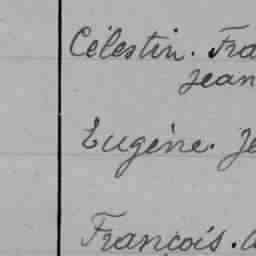 Célestin. Fra
Jean
Eugène. Je
François.